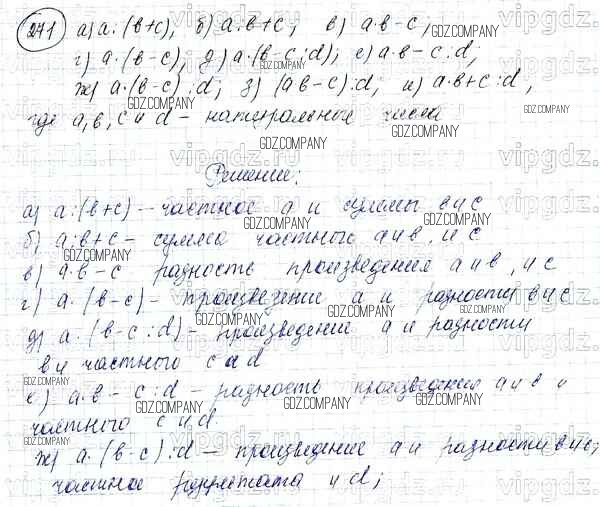 271 а) a:(в+с); б) a:в+с; в) a·в-с;
г) a·(в-с); д) a·(в-с:d); е) a·в-с:d;
ж) a·(в-с):d; з) (aв-с):d; и) a·в+с:d,
где a, в, с и d – натуральные числа
Решение:
а) a:(в+с) – частное a и суммы в и с
б) a:в+с – сумма частного a и в, и с
в) a·в-с разность произведения a и в, и с
г) a·(в-с) – произведение a и разности в и с
д) a·(в-с:d) – произведение a и разности
в и частного с и d
е) a·в-с:d – разность произведения a и в и
частного с и d.
ж) a·(в-с):d – произведение a и разности в и с;
частное результата и d;
GDZ.COMPANY
vipgdz.ru